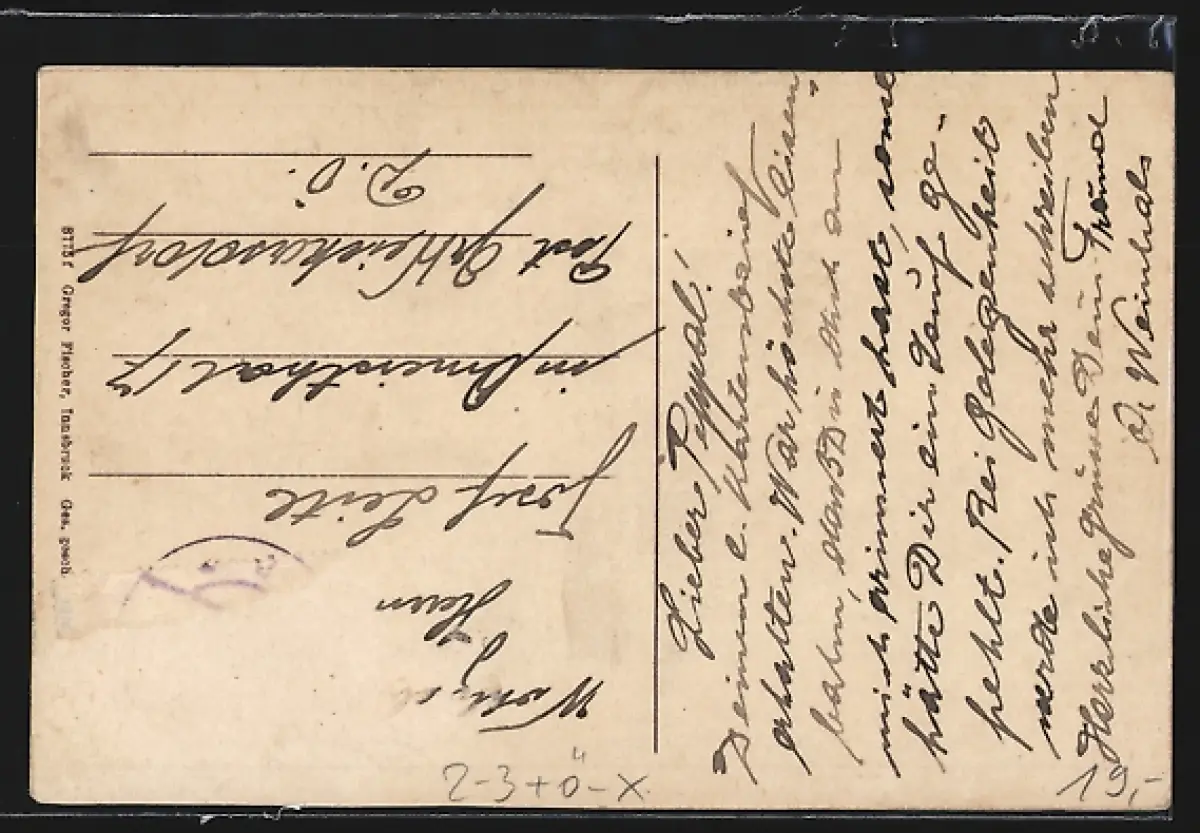 Lieber Peppal!
Deinen l. Kartenbrief
erhalten. War höchste Eisen
bahn, dass Du dich an
mich erinnert hast, sonst
hätte Dir ein Lauf ge-
fehlt. Bei Gelegenheit
werde ich mehr schreiben
Herzliche Grüsse Dein Freund
Weinhals
Herrn
Josef Leitl
in 17
Post
N.Ö.
8775 f Gregor Fischer, Innsbruck Ges. gesch.
2-3+Ö-X
19,-